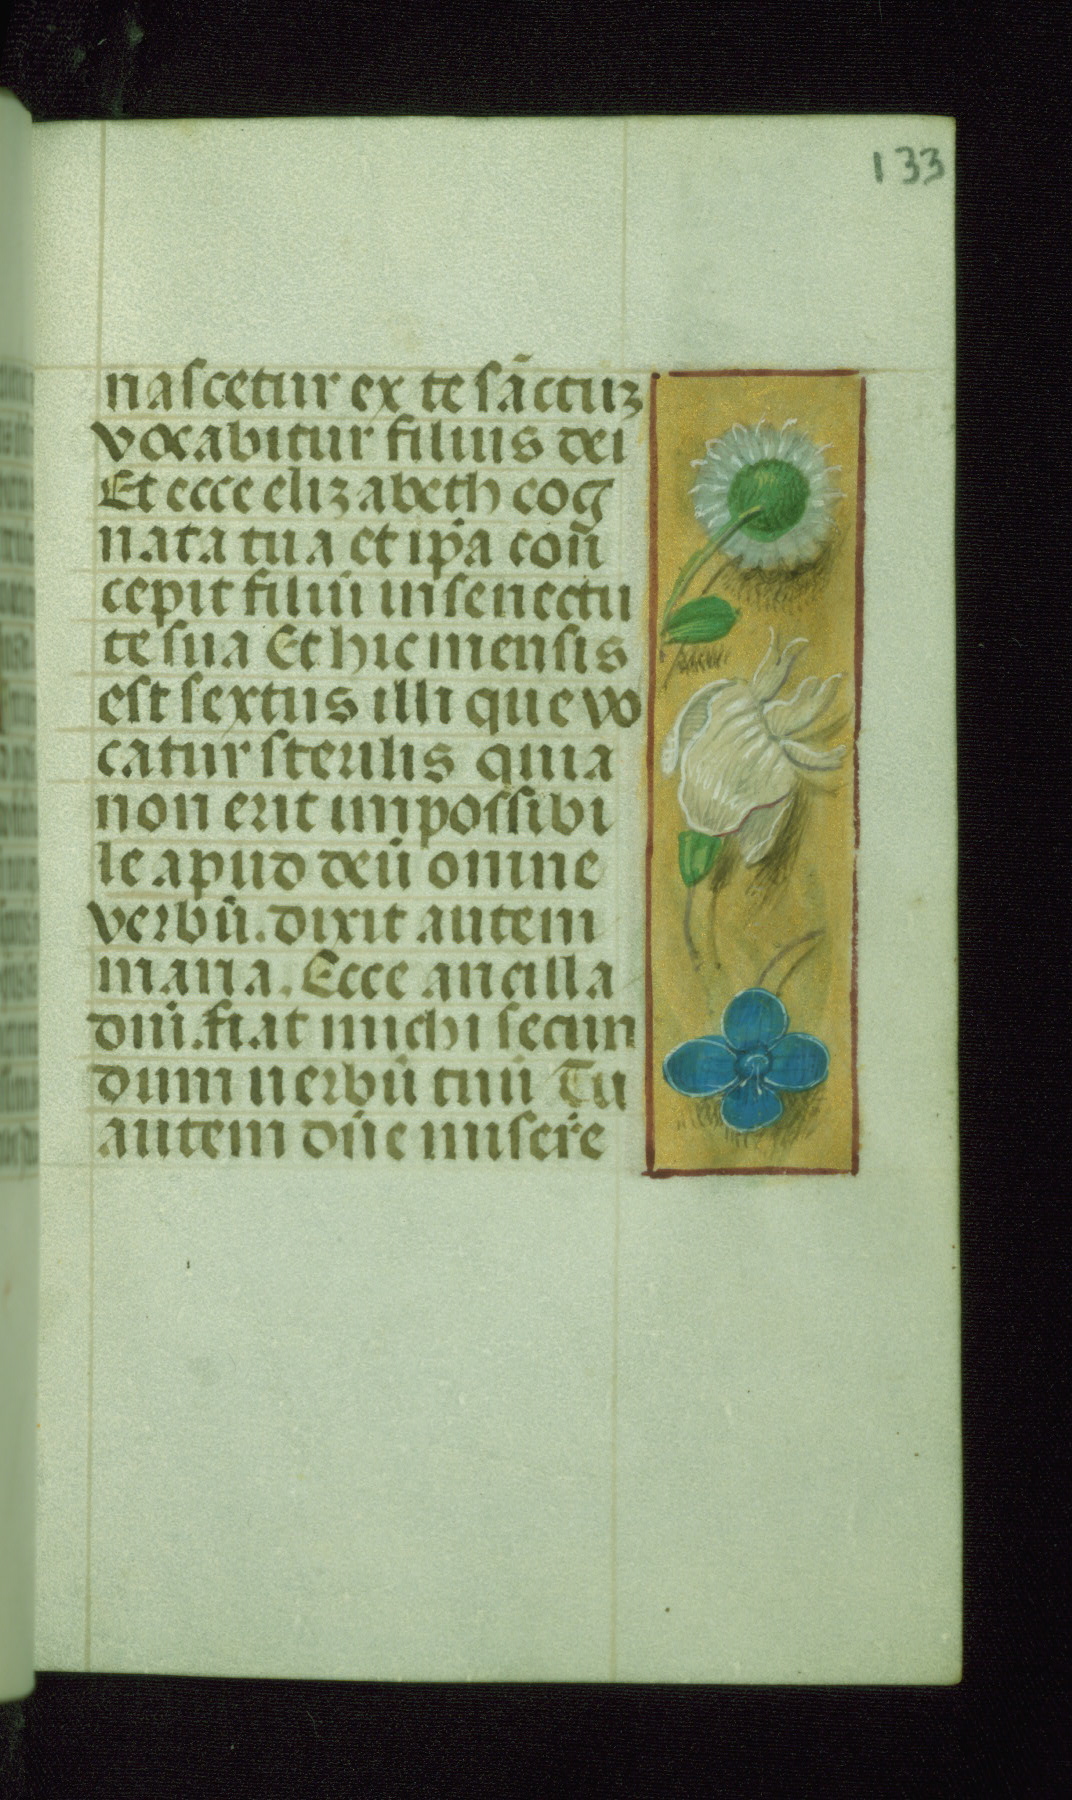 133
nascetur ex te sāctuʒ
vocabitur filius dei
Et ecce elizabeth cog
nata tua et ip̄a con
cepit filiū in senectu
te sua Et hic mensis
est sextus illi que vo
catur sterilis quia
non erit impossibi
le apud deū omne
verbū. dixit autem
maria. Ecce ancilla
dn̄i. fiat michi secun
dum uerbū tuū Tu
autem dn̄e misere